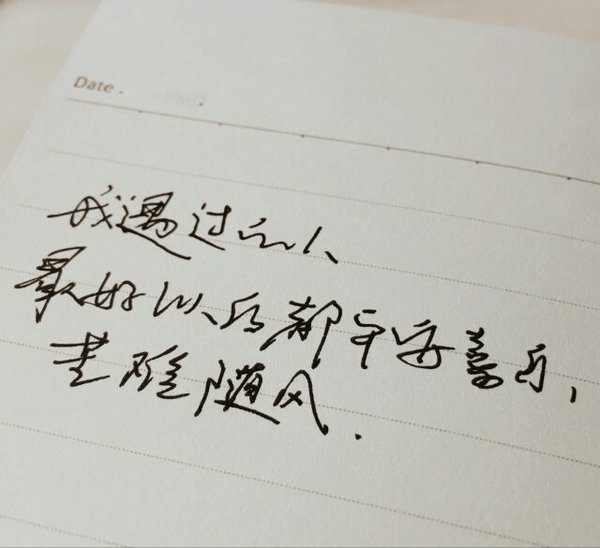 Date.
我遇过的人
最好以后都平安喜乐,
苦难随风.